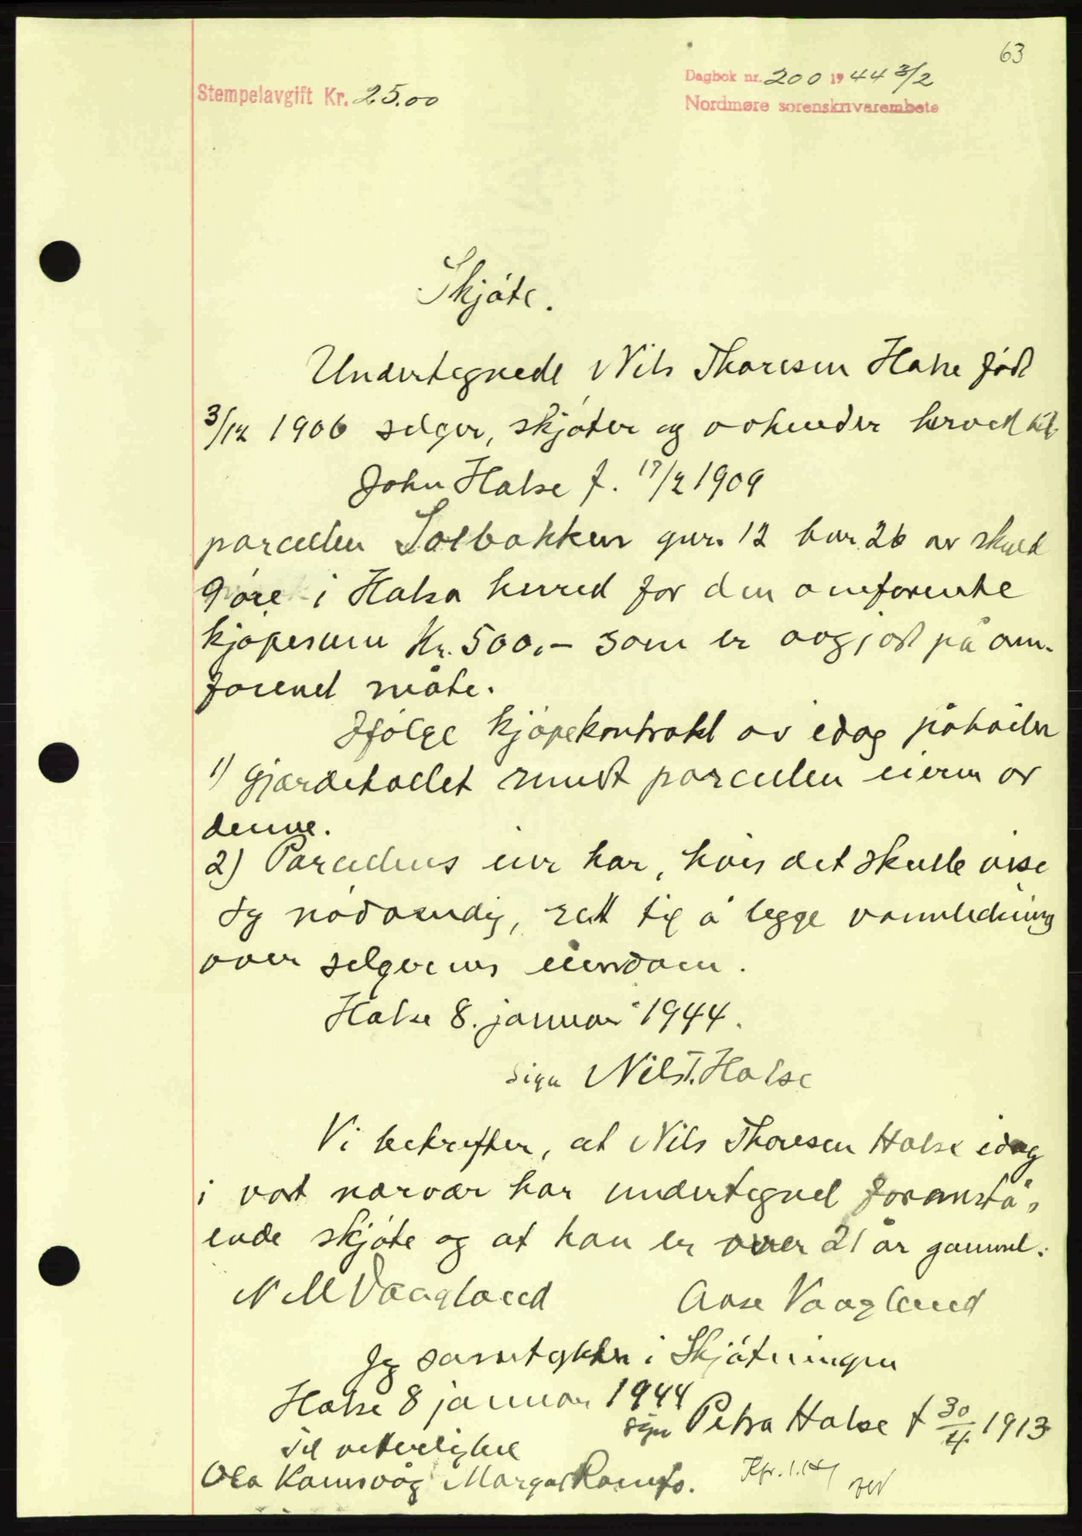 63
Stempelavgift Kr. 25.00
Dagbok nr. 200 1944 3/2
Nordmøre sorenskrivarembete
Skjøte.
Undertegnede Nils Thoresen Halse født
3/12 1906 selger, skjøter og avhender herved til
John Halse f. 17/2 1909
parcellen Solbakken gnr. 12 bnr. 26 av skyld
9 øre i Halsa herred for den omforente
kjøpesum Kr. 500,- som er avgjort på om-
forenet måte.
Ifølge kjøpekontrakt av idag påhviler
1) gjærdeholdet rundt parcellen eieren av
denne.
2) Parcellens eier har, hvis det skulle vise
sig nødvendig, rett til å legge vannledning
over selgerens eiendom.
Halse 8. januar 1944.
sign Nils T. Halse
Vi bekrefter, at Nils Thoresen Halse idag
i vort nærvær har undertegnet foranstå-
ende skjøte og at han er over 21 år gammel.
N M Vaagland Aase Vaagland
Jeg samtykker i Skjøtningen
Halse 8 januar 1944
sign Petra Halse f 30/4 1913
Til vitterlighet
Ola Kamsvåg Margat
Kfr.